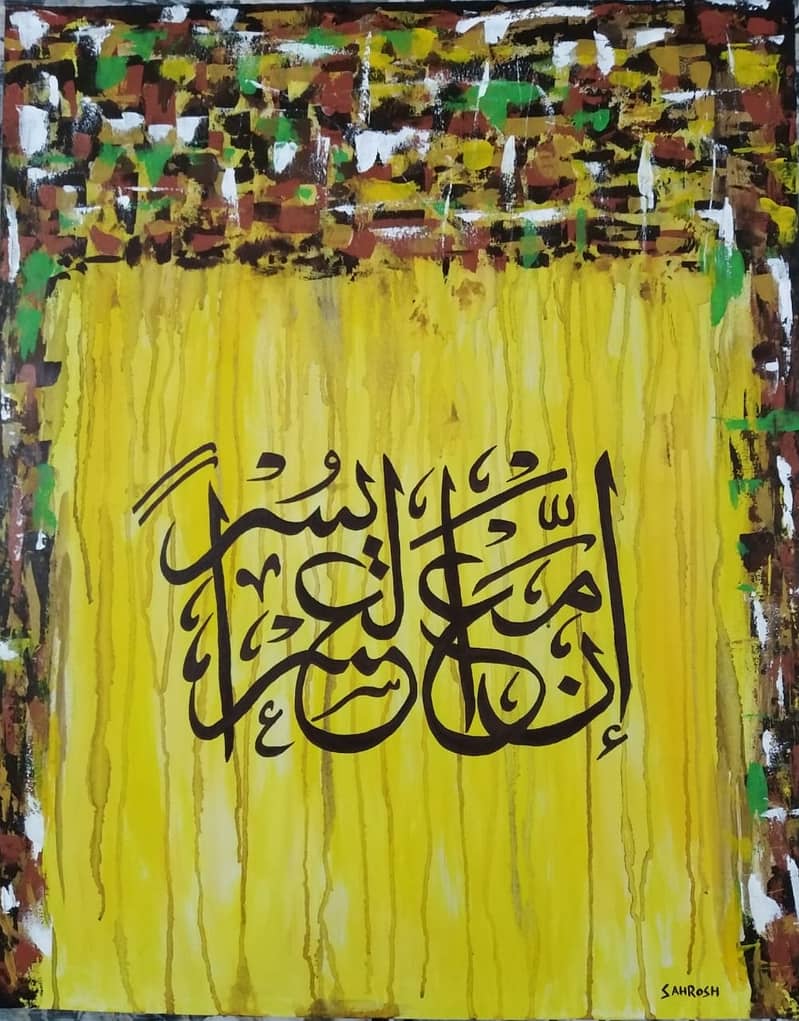 إِنَّ مَعَ العُسْرِ يُسْراً
SAHROSH